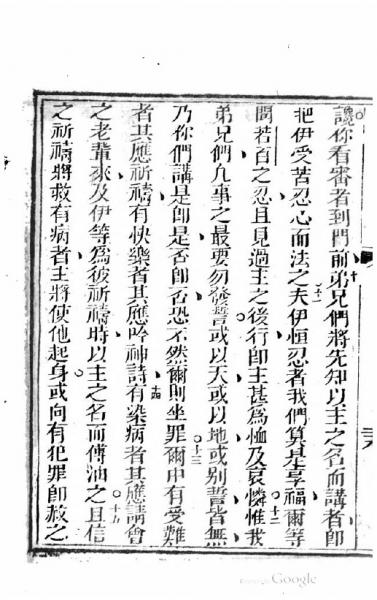 說你看審者到門前弟兄們將先知以主之名而講者即
十
把伊受苦忍心而法之夫伊恒忍者我們算其是享福爾等
十一
聞若百之忍且見過主之後行即主甚為恤及哀憐惟我
十二
弟兄們凡事之最要勿發誓或以天或以地或別誓皆無
乃你們講是即是否即否恐不然爾則坐罪爾中有受難
十三
者其應祈禱有快樂者其應吟神詩有染病者其應請會
十四
之老輩來及伊等為彼祈禱時以主之名而傅油之且信
十五
之祈禱將救有病者主將使他起身或向有犯罪即赦之
Google